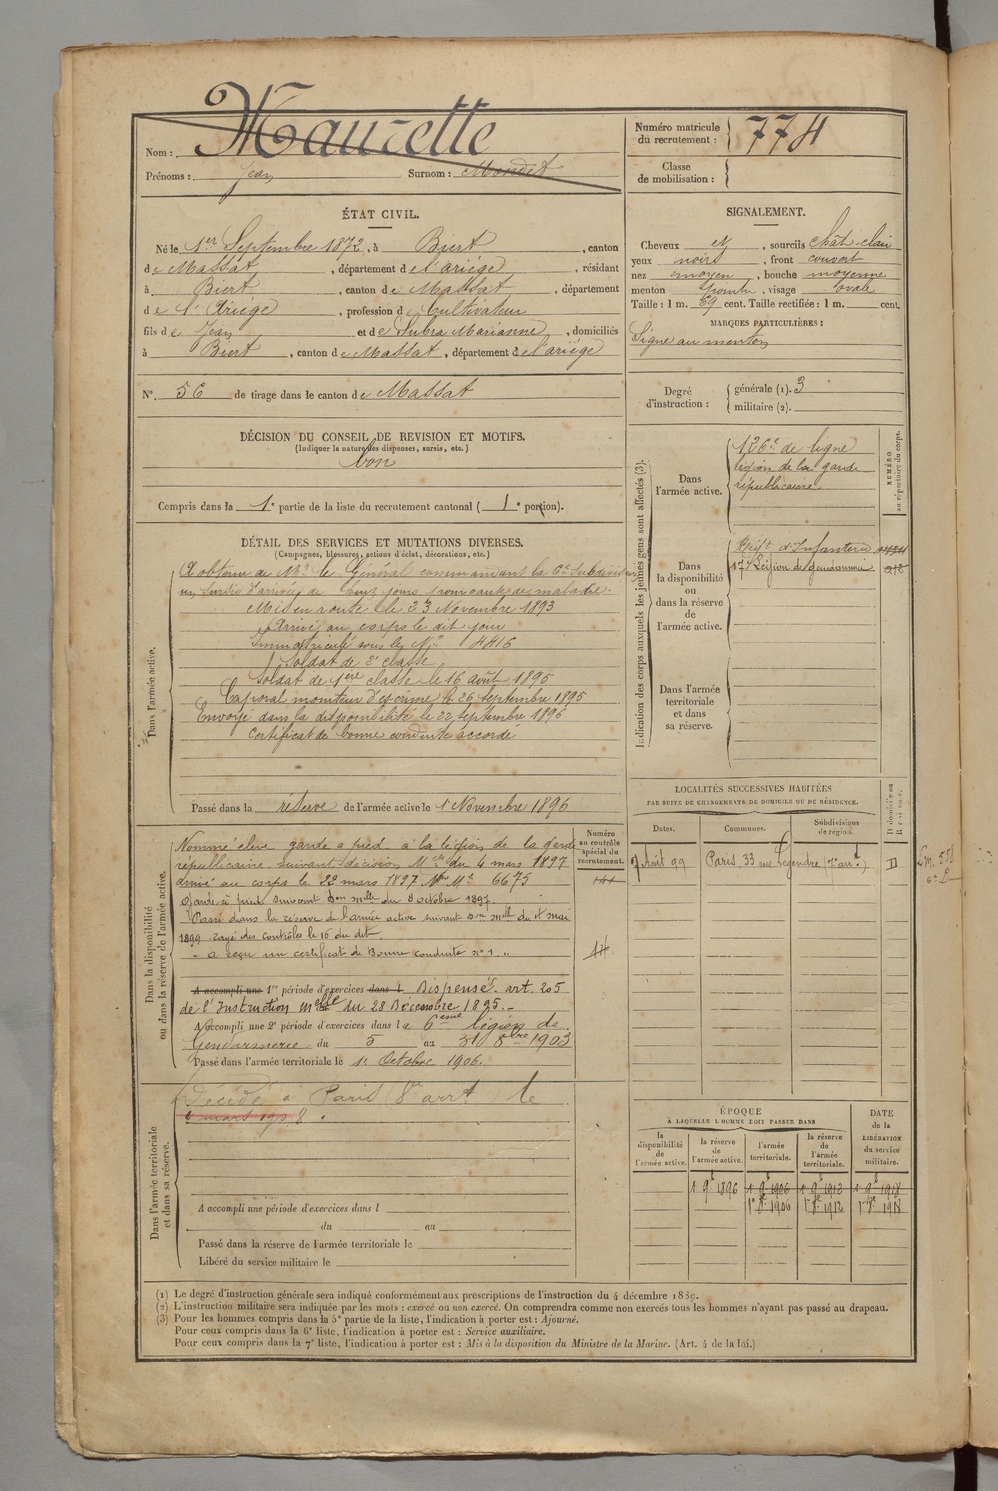 Nom : Maurette
Prénoms : Jean Surnom : Mondet
ÉTAT CIVIL.
Né le 1er Septembre 1872, à Biert, canton
de Massat, département de l'ariége, résidant
à Biert, canton de Massat, département
de l'Ariége, profession de Cultivateur
fils de Jean et de Subra Marianne, domiciliés
à Biert, canton de Massat, département de l'ariége
N°. 56 de tirage dans le canton de Massat
DÉCISION DU CONSEIL DE REVISION ET MOTIFS.
(Indiquer la nature des dispenses, sursis, etc.)
bon
Compris dans la 1e partie de la liste du recrutement cantonal (1e portion).
DÉTAIL DES SERVICES ET MUTATIONS DIVERSES.
(Campagnes, blessures, actions d'éclat, décorations, etc.)
Dans l'armée active.
A obtenu de Mr. le Général commandant la 6e Subdivision
un sursis d'arrivée de huit jours pour cause de maladie.
Mis en route le 23 Novembre 1893
Arrivé au corps le dit jour
Immatriculé sous le No 4416
Soldat de 2e classe
Soldat de 1ère classe le 16 août 1895
Caporal moniteur d'escrime le 26 septembre 1895
Envoyé dans la disponibilité le 22 septembre 1896
Certificat de bonne conduite accordé
Passé dans la réserve de l'armée active le 1 Novembre 1896
Dans la disponibilité
ou dans la réserve de l'armée active.
Numéro
au contrôle
spécial du
recrutement.
Nommé élève garde a pied à la légion de la garde
républicaine suivant décision Mlle du 4 mars 1897
arrivé au corps le 22 mars 1897 Nro Mle 6675
Garde à pied suivant don mlle du 8 octobre 1897.
Passé dans la réserve de l'armée active suivant don mlle du 4 mai
1899 rayé des contrôles le 16 du dit
- a reçu un certificat de Bonne conduite no 1. "
A accompli une 1re période d'exercices dans l Dispensé. art. 205
de l'Instruction melle du 28 Décembre 1895.-
A accompli une 2e période d'exercices dans la 6ème légion de
Gendarmerie du 5 au 31 8bre 1903
Passé dans l'armée territoriale le 1er Octobre 1906.
Dans l'armée territoriale
et dans sa réserve.
Décédé à Paris 8e arrt le
mars 1908.
A accompli une période d'exercices dans l
du au
Passé dans la réserve de l'armée territoriale le
Libéré du service militaire le
Numéro matricule
du recrutement : 774
Classe
de mobilisation :
SIGNALEMENT.
Cheveux et, sourcils chât. clair
yeux noirs, front couvert
nez moyen, bouche moyenne
menton pointu, visage ovale
Taille : 1 m. 69 cent. Taille rectifiée : 1 m. cent.
MARQUES PARTICULIÈRES :
Signe au menton
Degré
d'instruction :
générale (1). 3
militaire (2).
Indication des corps auxquels les jeunes gens sont affectés (3).
NUMÉRO
au répertoire du corps.
Dans
l'armée active.
126e de ligne
légion de la garde
républicaine
Dans
la disponibilité
ou
dans la réserve
de
l'armée active.
Régt d'Infanterie
17e Légion de gendarmerie
Dans l'armée
territoriale
et dans
sa réserve.
LOCALITÉS SUCCESSIVES HABITÉES
PAR SUITE DE CHANGEMENTS DE DOMICILE OU DE RÉSIDENCE.
Dates. Communes. Subdivisions
de région.
D domicile ou
R résidence.
7 Août 99 Paris, 33 rue Legendre (7e arrt.) D
ÉPOQUE
A LAQUELLE L'HOMME DOIT PASSER DANS
la
disponibilité
de
l'armée active.
la réserve
de
l'armée active.
l'armée
territoriale.
la réserve
de
l'armée
territoriale.
DATE
de la
LIBÉRATION
du service
militaire.
1 9e 1896 1 9e 1906 1 9e 1912 1 9e 1918
1e 8e 1906 1e 8e 1912 1e 8e 1918
(1) Le degré d'instruction générale sera indiqué conformément aux prescriptions de l'instruction du 4 décembre 1889.
(2) L'instruction militaire sera indiquée par les mots : exercé ou non exercé. On comprendra comme non exercés tous les hommes n'ayant pas passé au drapeau.
(3) Pour les hommes compris dans la 5e partie de la liste, l'indication à porter est : Ajourné.
Pour ceux compris dans la 6e liste, l'indication à porter est : Service auxiliaire.
Pour ceux compris dans la 7e liste, l'indication à porter est : Mis à la disposition du Ministre de la Marine. (Art. 4 de la loi.)